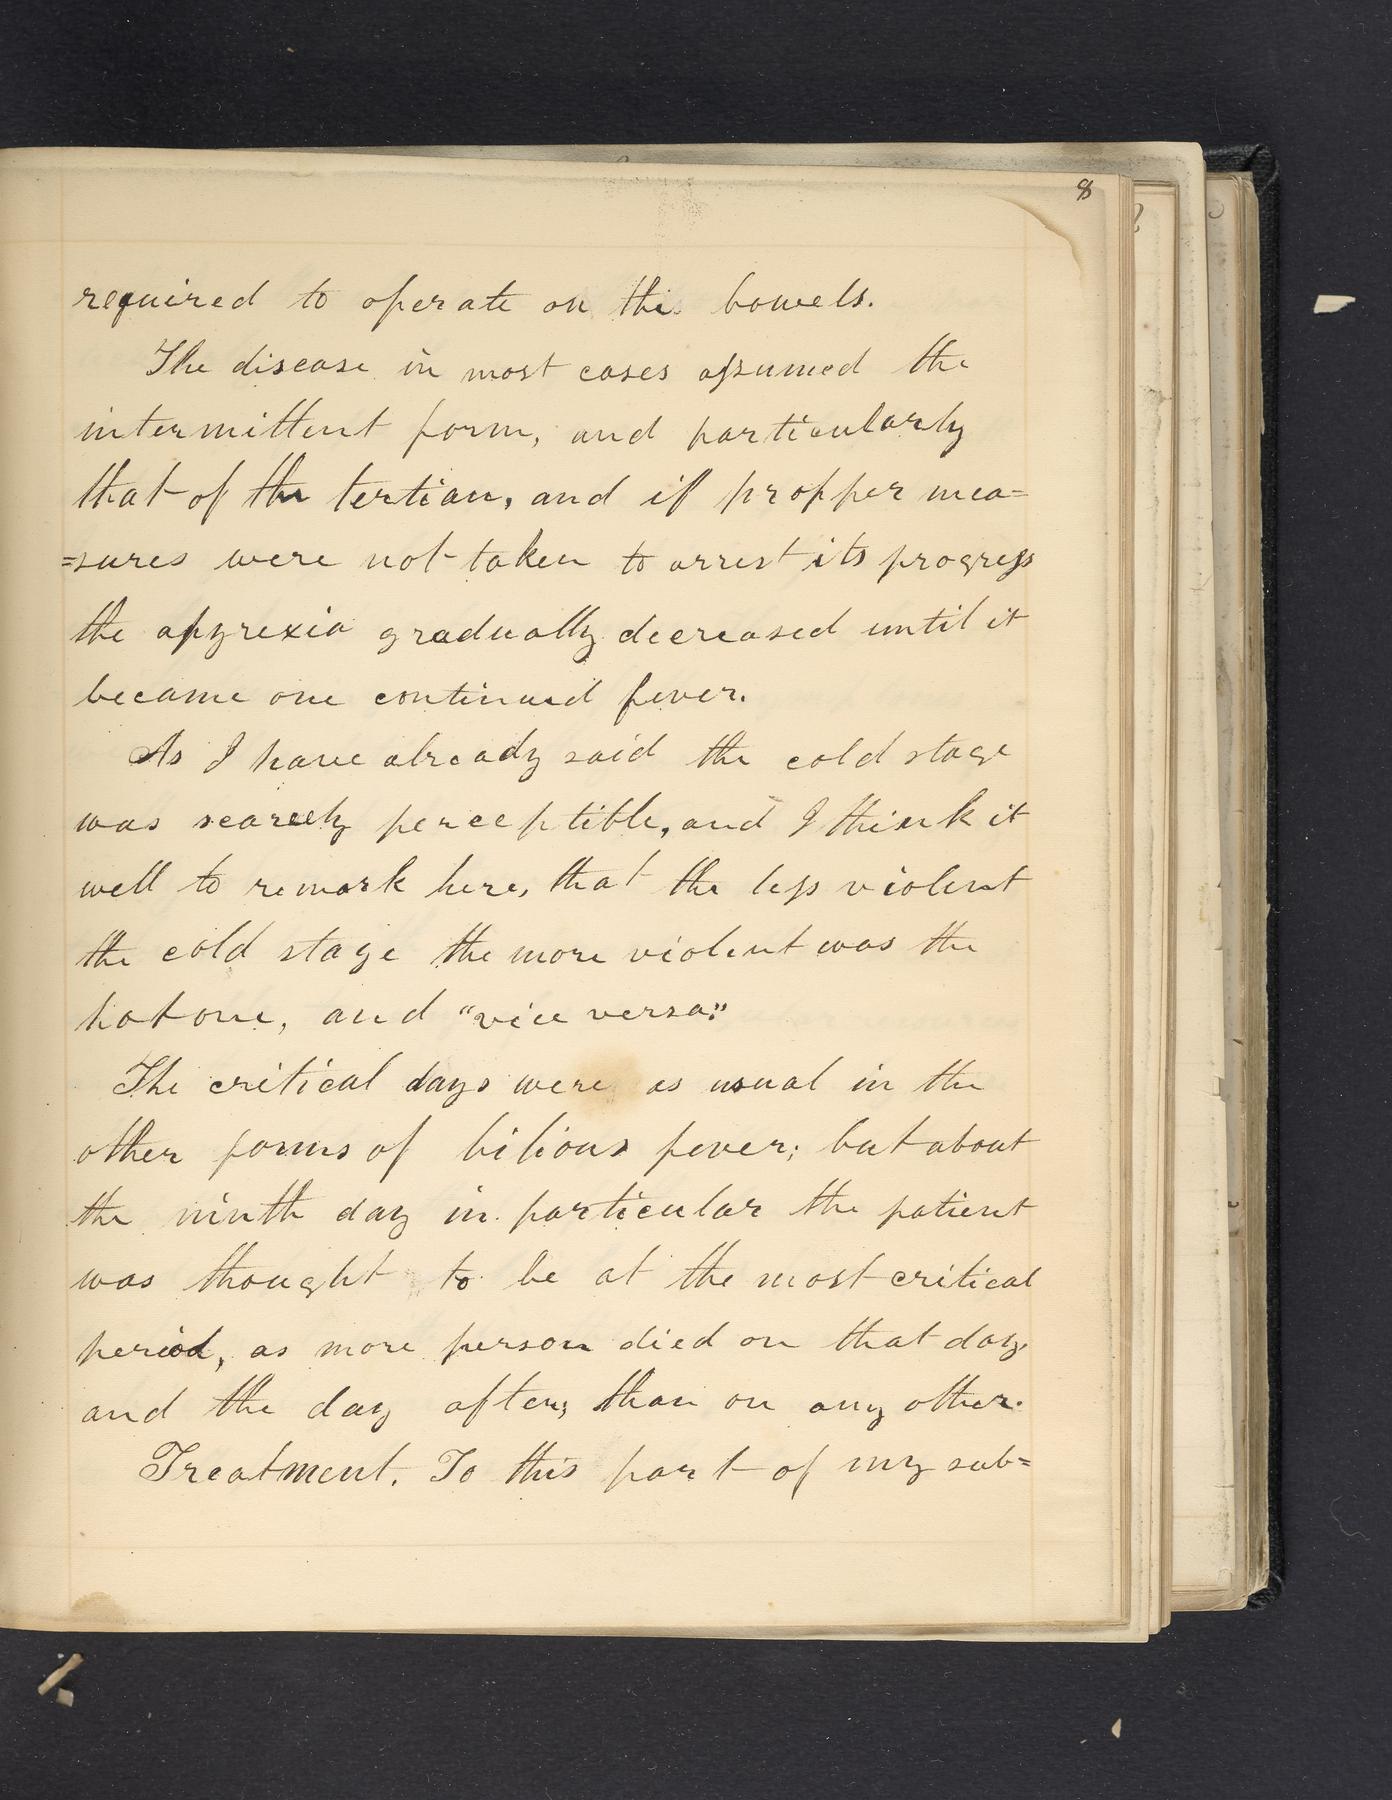 8
required to operate on the bowels.
The disease in most cases assumed the
intermittent form, and particularly
that of the tertian, and if propper mea=
=sures were not taken to arrest its progress
the apyrexia gradually decreased until it
became one continued fever.
As I have already said the cold stage
was scarcely perceptible, and I think it
well to remark here, that the less violent
the cold stage the more violent was the
hot one, and "vice versa."
The critical days were as usual in the
other forms of bilious fever; but about
the ninth day in particular the patient
was thought to be at the most critical
period, as more person died on that day
and the day after, than on any other.
Treatment. To this part of my sub=